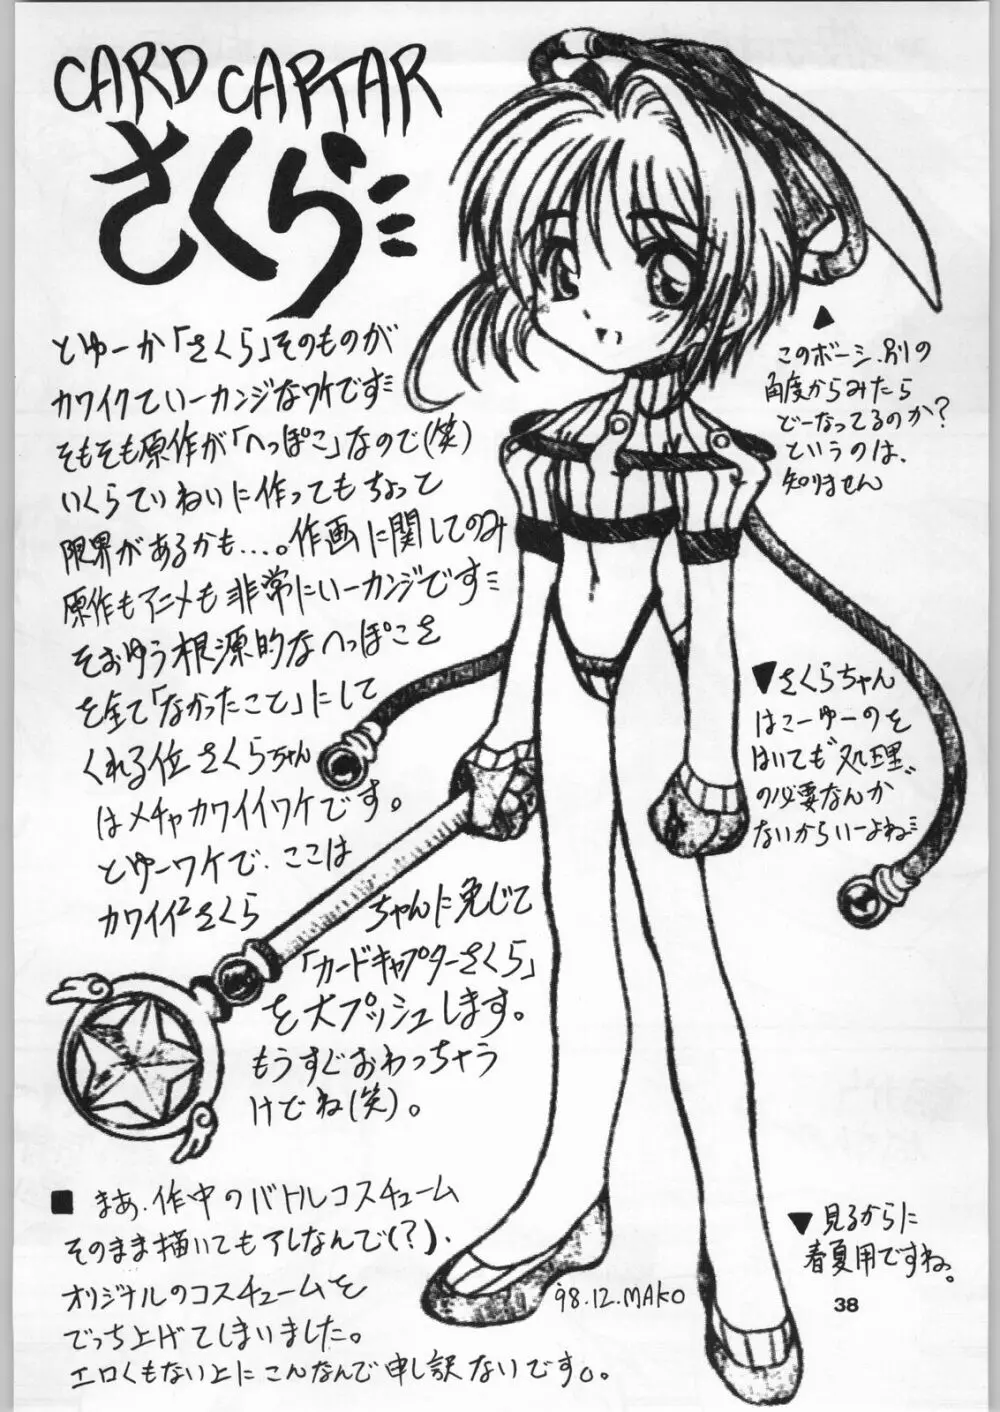 CARD CAPTAR
さくら
とゆーか「さくら」そのものが
カワイクていーカンジなワケです
そもそも原作が「へっぽこ」なので(笑)
いくらていねいに作ってもちょっと
限界があるかも…。作画に関してのみ
原作もアニメも非常にいーカンジです
そおゆう根源的なへっぽこさ
を全て「なかったこと」にして
くれる位さくらちゃん
はメチャカワイイワケです。
とゆーワケで、ここは
カワイイ2さくら
ちゃんに免じて
「カードキャプターさくら」
を大プッシュします。
もうすぐおわっちゃう
けどね(笑)。
■まぁ、作中のバトルコスチューム
そのまま描いてもアレなんで(?)、
オリジナルのコスチュームを
でっち上げてしまいました。
エロくもない上にこんなんで申し訳ないです。
▲
このボーシ、別の
角度からみたら
どーなってるのか?
というのは、
知りません
▼さくらちゃん
はこーゆーのを
はいても〝処理〟
の必要なんか
ないからいーよね
▼見るからに
春夏用ですね。
'98.12.MAKO
38